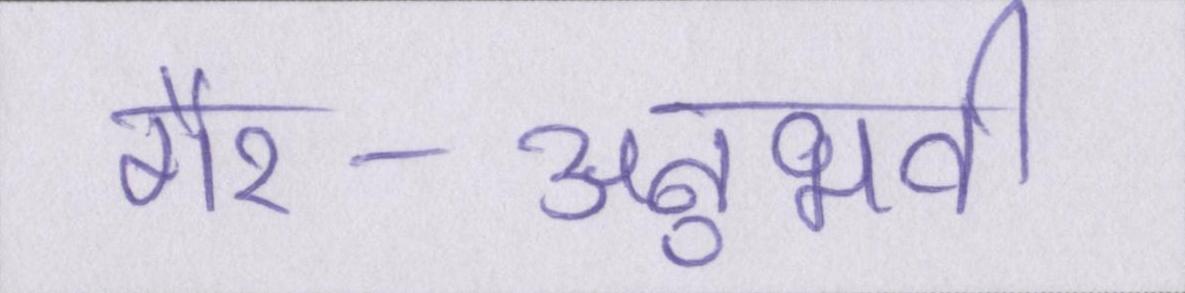 गैर-अनुभवी